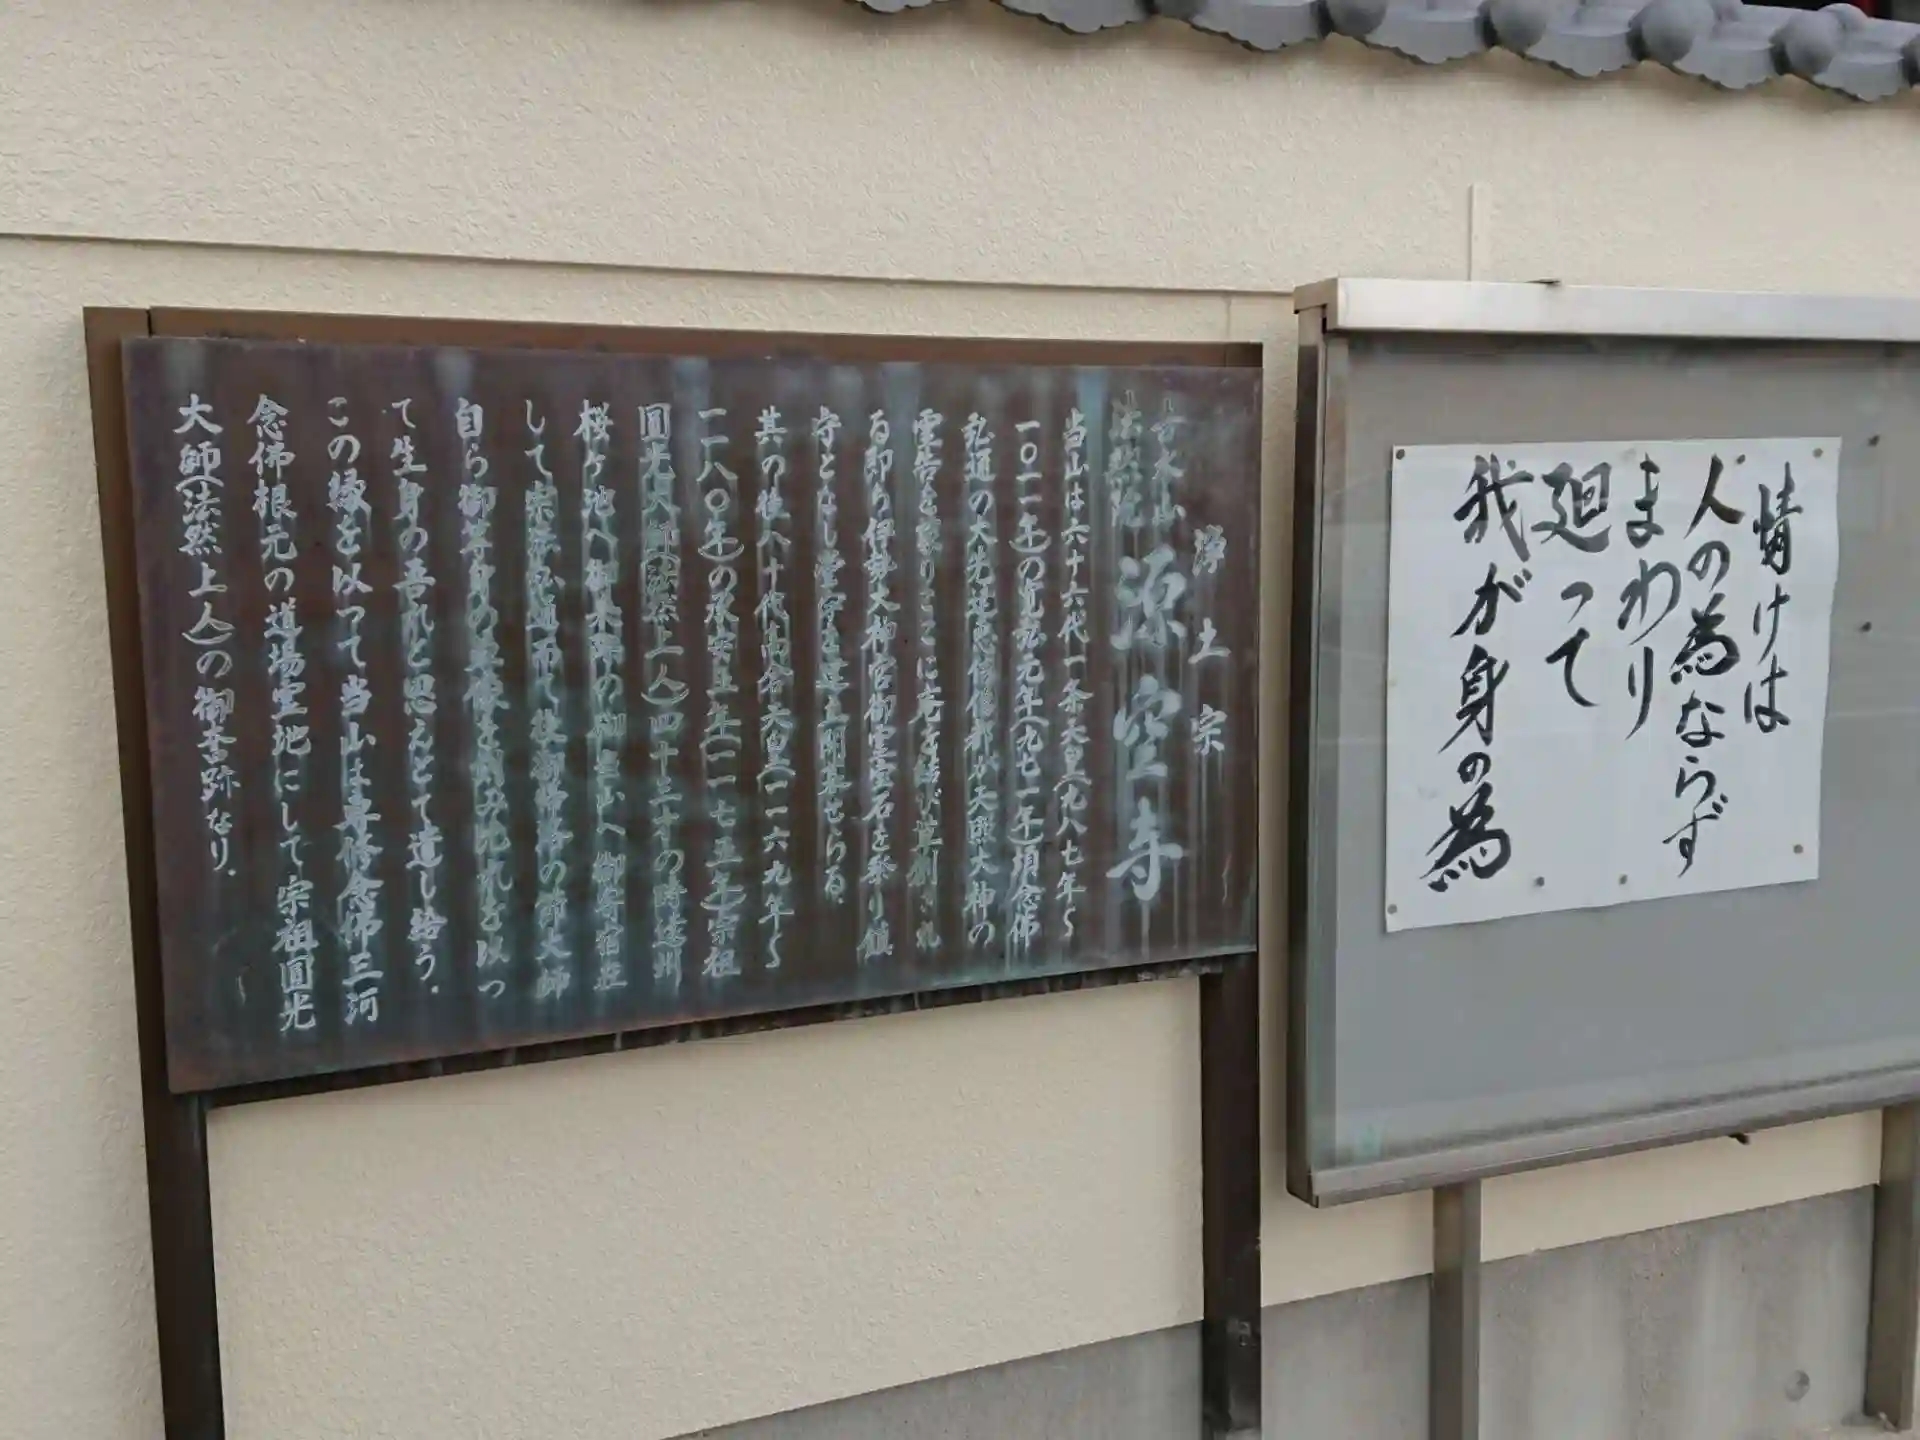 浄土宗
吉水山
法然院
源空寺
当山は六十六代一条天皇(九八七年〜
一〇一一年)の寛弘元年(九七一年)頃念佛
弘通の大先達恵信僧都が天照大神の
霊告を蒙りここに庵を結び草創され
る即ち伊勢大神宮御霊宝石を祭り鎮
守となし堂宇を建立開基せらる.
其の後八十代高倉天皇(一一六九年〜
一一八〇年)の承安五年(一一七五年)宗祖
圓光大師(法然上人)四十三才の時遠州
桜ヶ池へ御来錫の御当山へ御寄宿在
して宗深弘通而て後御帰洛の節大師
自ら御等身の尊像を刻み此れを以っ
て生身の吾れと思えとて遺し給う.
この縁を以つて当山は専修念佛三河
念佛根元の道場霊地にして宗祖圓光
大師(法然上人)の御舊跡なり.
情けは
人の為ならず
まわり
廻って
我が身の為